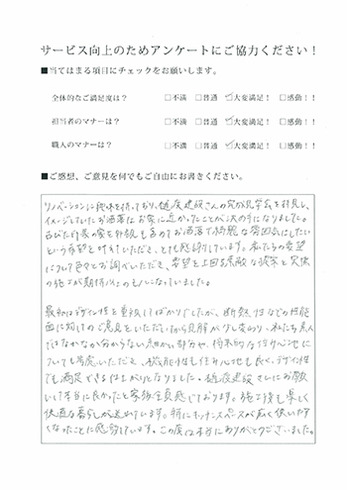 サービス向上のためアンケートにご協力ください！
■当てはまる項目にチェックをお願いします。
全体的なご満足度は？ □不満 □普通 ☑大変満足！ □感動！！
担当者のマナーは？ □不満 □普通 ☑大変満足！ □感動！！
職人のマナーは？ □不満 □普通 ☑大変満足！ □感動！！
■ご感想、ご意見を何でもご自由にお書きください。
リノベーションに興味を持っており、建設さんの完成見学会を拝見し、
イメージしていたお洒落なお家に近かったことが決め手になりました。
古びた印象の家を外観も含めてお洒落で綺麗な雰囲気にしたい
という希望を叶えていただき、とても感謝しています。私たちの要望
について色々とお調べいただき、希望を上回る素敵な提案と実際
の施工が期待以上のものになっていました。
最初はデザイン性を重視してばかりでしたが、断熱性などの性能
面に対してのご意見をいただいてから見解が少し変わり、私たち素人
ではなかなか分からない細かい部分や、将来的な住み心地に
ついても考慮いただき、機能性も住み心地も良く、デザイン性
でも満足できる仕上がりとなりました。建設さんにお願
いして本当に良かったと家族全員感じております。施工後も楽しく
快適な暮らしが送れています。特にキッチンスペースが広く使いやす
くなったことに感動しています。この度は本当にありがとうございました。